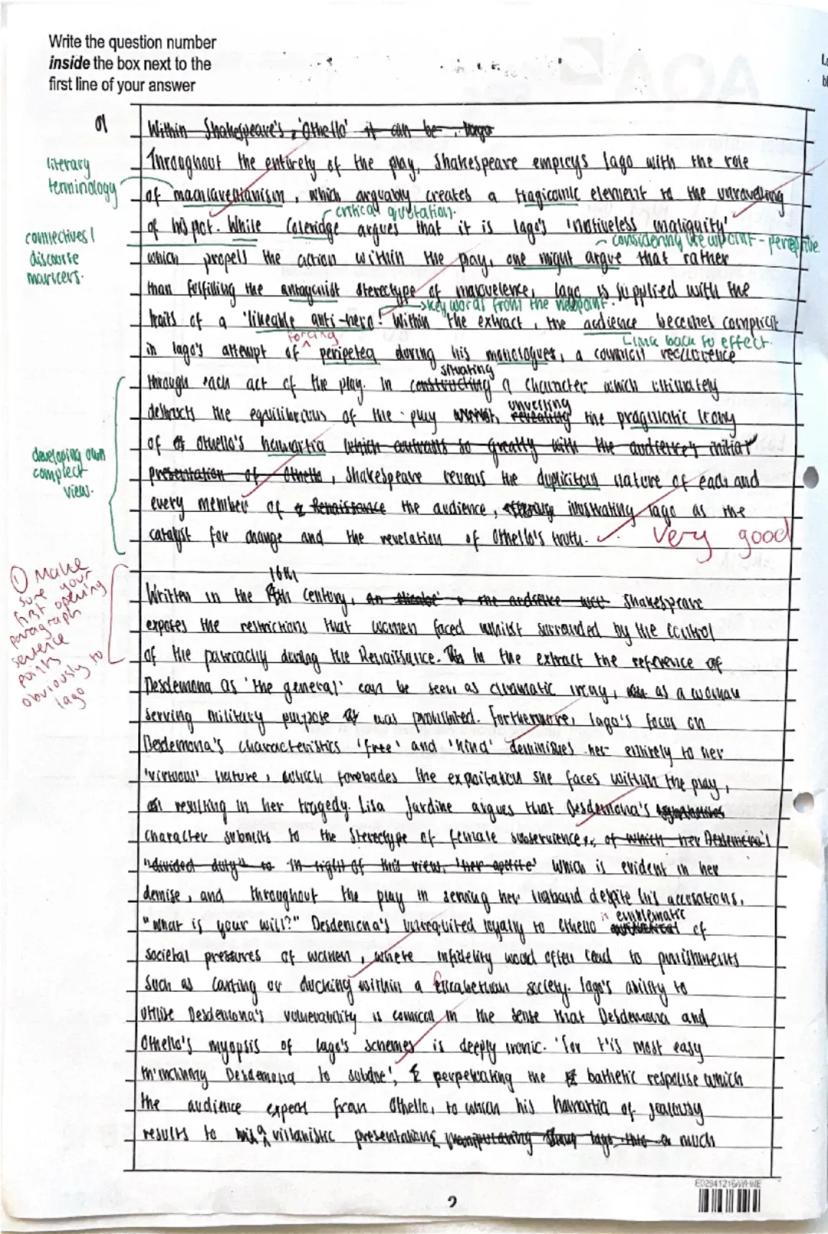 Write the question number
inside the box next to the
first line of your answer
01
Within Shakespeare's, 'Othello' it can be
Throughout the entirety of the play, Shakespeare employs Iago with the role
literary
terminology
of maciliaventanism, which arguably creates a tragicomic element to the unravelling
critical quotation.
of his plot. While Coleridge argues that it is Iago's 'motiveless malignity'
connectives /
discourse
markers.
considering viewpoint - perceptive
which propell the action within the play, one might argue that rather
than fulfilling the antagonist stereotype of malevelence, Iago is supplied with the
key words from the viewpoint.
traits of a 'likeable anti-hero'. Within the extract, the audience becomes complicit
Link back to effect.
forcing
in Iago's attempt of peripetea during his monologues, a common reoccurence
situating
through each act of the play. In constructing a character which ultimately
unveiling
destructs the equilibrium of the play revealing the pragmatic irony
developing own
complect
view.
of Othello's hamartia which contrasts so greatly with the audience's initial
presentation of Othello, Shakespeare reveals the duplicitous nature of each and
every member of a Renaissance the audience, illustrating Iago as the
catalyst for change and the revelation of Othello's truth.
Very good
① Make
sure your
first opening
paragraph
sentence
points
obviously to
Iago
16th
Written in the century, Shakespeare
exposes the restrictions that women faced whilst surrounded by the control
of the patriachy during the Renaissance. In the extract the reference of
Desdemona as 'the general' can be seen as dramatic irony, as a woman
serving military purpose was prohibited. Furthermore, Iago's focus on
Desdemona's characteristics 'free' and 'kind' deminishes her entirely to her
'virtuous' nature, which forebodes the expoitation she faces within the play,
resulting in her tragedy. Lisa Jardine argues that Desdemona's
character submits to the stereotype of female subservience, of which her Desdemona's
"divided duty" to In light of this view, 'her apetite' which is evident in her
demise, and throughout the play in serving her husband despite his accusations.
is emblematic
"What is your will?" Desdemona's unrequited loyalty to Othello of
societal pressures of women, where infidelity would often lead to punishments
such as carting or ducking within a Elizabethan society. Iago's ability to
utilise Desdemona's vulnerability is comical in the sense that Desdemona and
Othello's myopsis of Iago's schemes is deeply ironic. 'For t'is most easy
th'inclining Desdemona to subdue', perpetrating the bathetic response which
the audience expect from Othello, to which his hamartia of jealousy
results to villanistic presentation, much
2